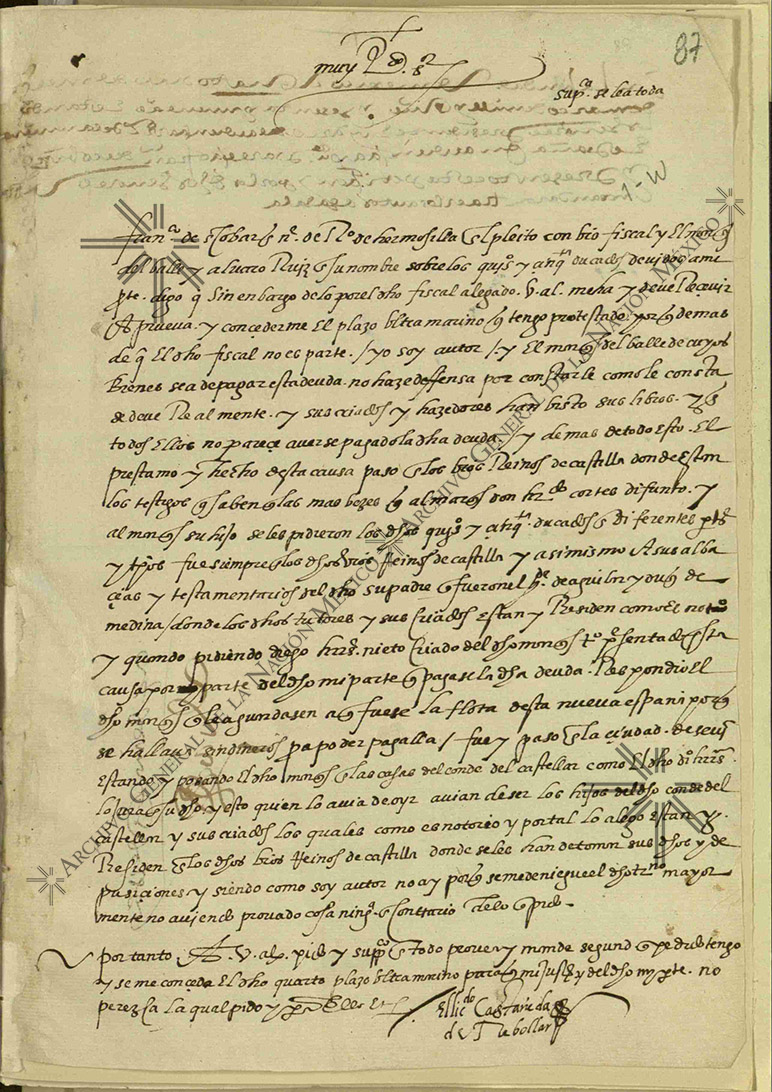 87
muy Pdo. sr
supca. se lea toda
franco. de escobar en ne. de Po. de hermosilla en el pleito con bro fiscal y El marqs
del balle y alvaro Ruiz en su nombre sobre los quis. y ducados devidos a mi
pte. digo q sin enbargo de lo por el dho fiscal alegado. V. al. me ha y deve Reçevir
A prueva. y conçederme El plazo bltramarino q tengo protestado porq demas
de q El dho fiscal no es parte. / yo soy autor / y El marqs del balle de cuyos
Bienes se a de pagar esta deuda. no haze deffensa por constarle como le consta
se deve Realmente. y sus criados y hazedores han bisto sus libros. y en
todos Ellos no pareçe averse pagado la dha deuda. / y demas de todo esto. El
prestamo y hecho desta causa paso en los bros Reinos de castilla donde estan
los testigos q saben q las mas bezes q al marqs don hrdo cortes difunto. y
al marqs su hijo se les pidieron los dhos quis. y ducados en diferentes ptes
y tpos fue siempre en los dhos bros Reinos de castilla y asimismo A sus alba
çeas y testamentarios del dho su padre q fueron el de aguilar y de
medina / donde los dhos tutores y sus criados estan y Residen como es noto
y quando pidiendo diego hrrs. nieto criado del dho marqs to. presentado en esta
causa por parte del dho mi parte q pagase la dha deuda. Respondio El
dho marqs q le aguardasen a q fuese la flota desta nueva españa porq
se hallava sin dineros pa poder pagalla / fue y paso en la çiudad de sevi
Estando y posando El dho marqs en las casas del conde del castellar como El dho do. hrrs.
lo jura en su dho. y esto quien lo avia de oyr avian de ser los hijos del dho conde del
castellar y sus criados los quales como es notorio y por tal lo alego estan y
Residen en los dhos bros Reinos de castilla donde se les han de tomar sus dhos y de
pusiciones y siendo como soy autor no ay porq se me deniegue el dho trno mayor
mente no aviendo provado cosa ningа. en contrario de lo q pido.
por tanto A. V. alt. pido y suppco en todo provea y mande segund q pedido tengo
y se me conceda El dho quarto plazo bltramarino para q mi justa y del dho my pte. no
perezca la qual pido y pa Ello Etc
Ellicdo Castañeda
de
Archivo General de la Nación México
Archivo General de la Nación México